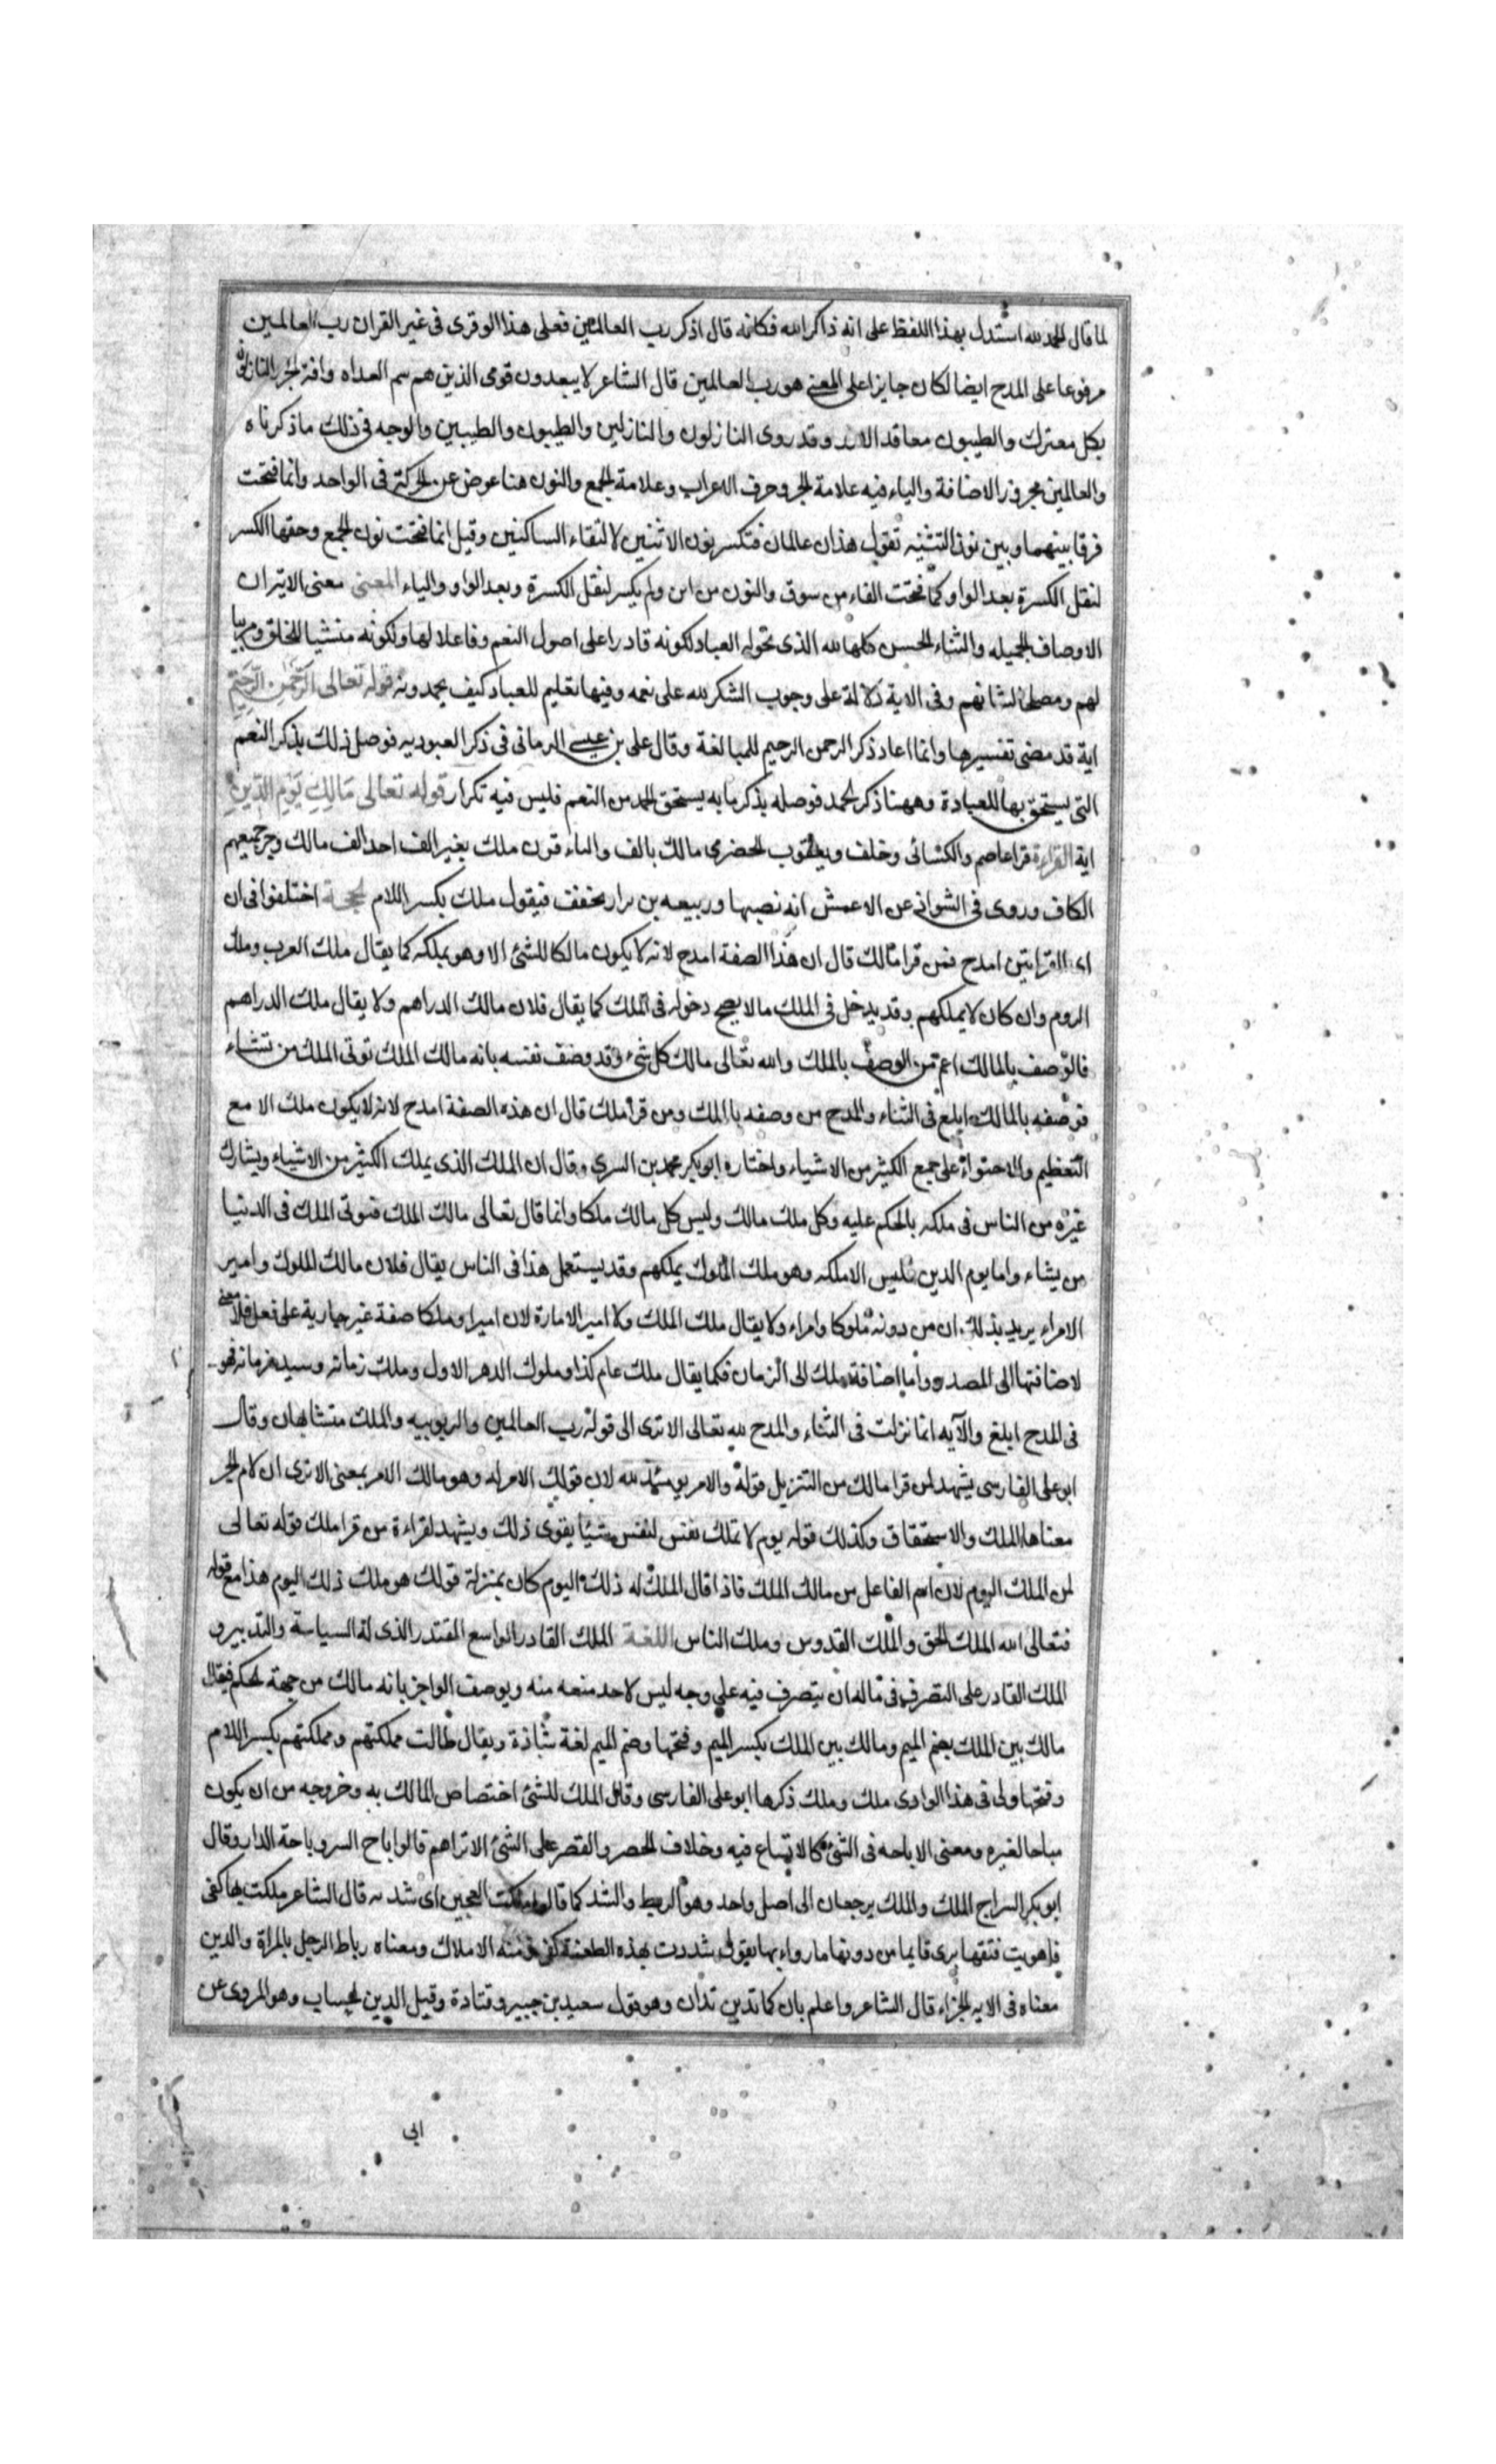 لما قال الحمد لله استدل بهذا اللفظ على انه ذاكر الله فكانه قال اذكر رب العالمين فعلى هذا لو قرى فى غير القران رب العالمين
مرفوعا على المدح ايضا لكان جايزا على المعنى هو رب العالمين قال الشاعر لا يبعدون قومى الذين هم سم العداه وافة الجزر النازلون
بكل معترك والطيبون معاقد الازر وقد روى النازلون والنازلين والطيبون والطيبين والوجه فى ذلك ما ذكرناه
والعالمين مجرور الاضافة والياء فيه علامة الجر وحرف الاعراب وعلامة الجمع والنون هنا عوض عن الحركة فى الواحد وانما فتحت
فرقا بينهما وبين نون التثنيه تقول هذان عالمان فتكسر نون الاثنين لالتقاء الساكنين وقيل انما فتحت نون الجمع وحقها الكسر
لثقل الكسرة بعد الواو كما فتحت الفاء من سوف والنون من اين ولم يكسر لثقل الكسرة وبعد الواو والياء المعنى معنى الاية ان
الاوصاف الجميله والثناء الحسن كلها لله الذى تحوله العباد لكونه قادرا على اصول النعم وفاعلا لها ولكونه منشيا للخلق ومربيا
لهم ومصلحا لشانهم وفى الاية دلالة على وجوب الشكر لله على نعمه وفيها تعليم للعباد كيف يحمدونه قوله تعالى الرَّحمٰنِ الرَّحِيمِ
اية قد مضى تفسيرها وانما اعاد ذكر الرحمن الرحيم للمبالغة وقال على بن عيسى الرمانى فى ذكر العبوديه فوصل ذلك بذكر النعم
التى يستحق بها للعبادة وههنا ذكر الحمد فوصله بذكر ما به يستحق الحمد من النعم فليس فيه تكرار قوله تعالى مَالِكِ يَوْمِ الدِّينِ
اية القراءة قرا عاصم والكسائى وخلف ويعقوب الحضرمى مالك بالف والباقون ملك بغير الف احد الف مالك وجر جميعهم
الكاف وروى فى الشواذ عن الاعمش انه نصبها وربيعه بن نزار يخفف فيقول ملك بكسر اللام الحجة اختلفوا فى ان
اى القرايتين امدح فمن قرا مالك قال ان هذا الصفة امدح لانه لا يكون مالكا للشئ الا وهو يملكه كما يقال ملك العرب وملك
الروم وان كان لا يملكهم وقد يدخل فى الملك ما لا يصح دخوله فى الملك كما يقال فلان مالك الدراهم ولا يقال ملك الدراهم
فالوصف بالمالك اعم من الوصف بالملك والله تعالى مالك كل شىء وقد وصف نفسه بانه مالك الملك توتى الملك من تشاء
فوصفه بالمالك ابلغ فى الثناء والمدح من وصفه بالملك ومن قرا ملك قال ان هذه الصفة امدح لانه لا يكون ملك الا مع
التعظيم والاحتواء على جمع الكثير من الاشياء واختاره ابو بكر محمد بن السرى وقال ان الملك الذى يملك الكثير من الاشياء ويشارك
غيره من الناس فى ملكه بالحكم عليه وكل ملك مالك وليس كل مالك ملكا وانما قال تعالى مالك الملك فتوتى الملك فى الدنيا
من يشاء واما يوم الدين فليس الا ملكه وهو ملك الملوك يملكهم وقد يستعمل هذا فى الناس يقال فلان مالك الملوك وامير
الامراء يريد بذلك ان من دونه ملوكا وامراء ولا يقال ملك الملك ولا امير الامارة لان اميرا وملكا صفة غير جارية على فعل فلا معنى
لاضافتها الى المصدر واما اضافة ملك الى الزمان فكما يقال ملك عام كذا وملوك الدهر الاول وملك زمانه وسيد زمانه فهو
فى المدح ابلغ والآيه انما نزلت فى الثناء والمدح لله تعالى الا ترى الى قوله رب العالمين والربوبيه والملك متشابهان وقال
ابو على الفارسى يشهد لمن قرا مالك من التنزيل قوله والامر يومئذ لله لان قولك الامر له وهو مالك الامر بمعنى الا ترى ان لام الجر
معناها الملك والاستحقاق وكذلك قوله يوم لا تملك نفس لنفس شيئا يقوى ذلك ويشهد لقراءة من قرا ملك قوله تعالى
لمن الملك اليوم لان اسم الفاعل من مالك الملك فاذا قال الملك له ذلك اليوم كان بمنزلة قولك هو ملك ذلك اليوم هذا مع قوله
فتعالى الله الملك الحق والملك القدوس وملك الناس اللغة الملك القادر الواسع المقتدر الذى له السياسة والتدبير و
الملك القادر على التصرف فى ماله ان يتصرف فيه على وجه ليس لاحد منعه منه ويوصف العاجز بانه مالك من جهة الحكم فيقال
مالك بين الملك بضم الميم ومالك بين الملك بكسر الميم وفتحها وضم الميم لغة شاذة ويقال طالت مملكتهم ومملكتهم بكسر اللام
وفتحها ولى فى هذا الوادى ملك وملك ذكرها ابو على الفارسى وقال الملك للشئ اختصاص المالك به وخروجه من ان يكون
مباحا لغيره ومعنى الاباحه فى الشئ كالاتساع فيه وخلاف الحصر والقصر على الشئ الا تراهم قالوا باح السر وباحة الدار وقال
ابو بكر السراج الملك والملك يرجعان الى اصل واحد وهو الربط والشد كما قالوا ملكت العجين اى شدده قال الشاعر ملكت بها كفى
فاهويت فتقها يرى قايما من دونها ما رواءها يقول شددت بهذه الطعنة كفى ومنه الاملاك ومعناه رباط الرجل بالمراة والدين
معناه فى الايه الجزاء قال الشاعر واعلم بان كما تدين تدان وهو قول سعيد بن جبير وقتادة وقيل الدين الحساب وهو المروى عن
ابى